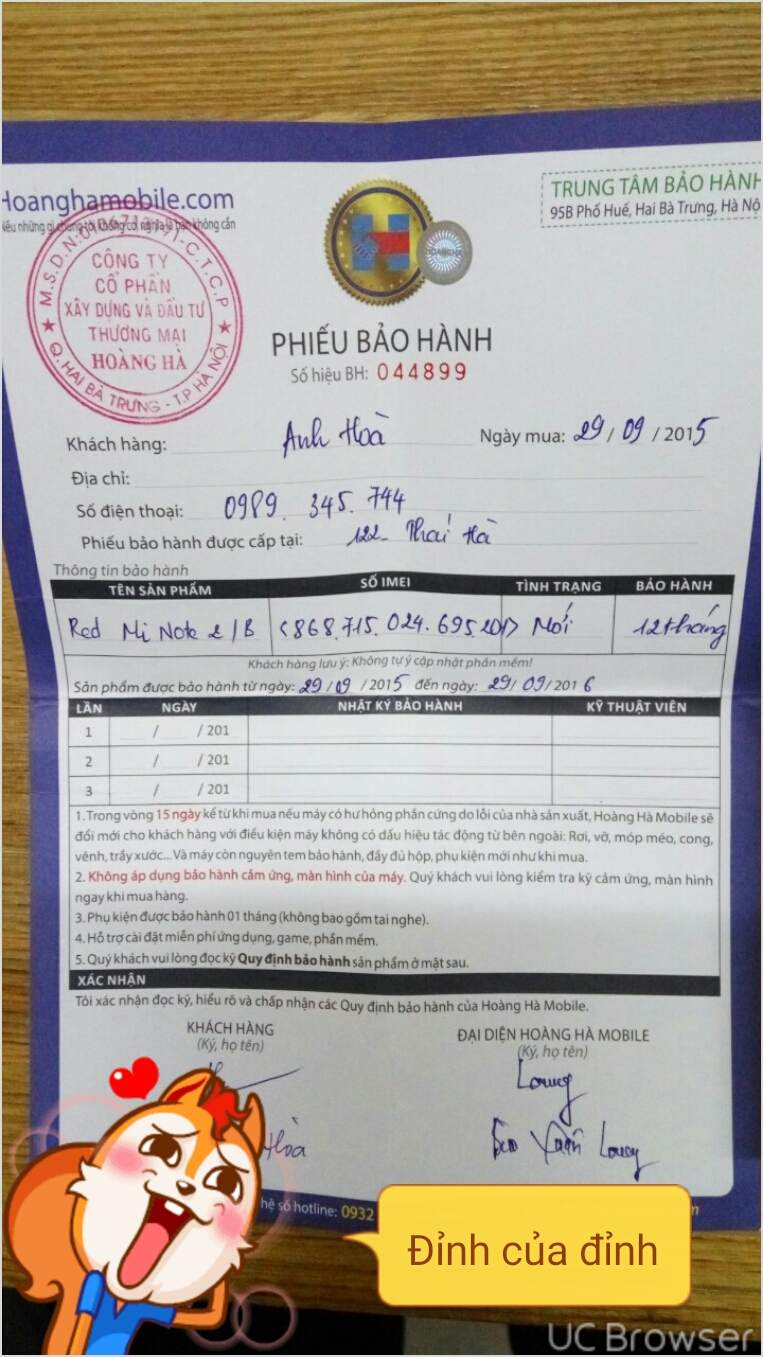 Hoanghamobile.com
TRUNG TÂM BẢO HÀNH
95B Phố Huế, Hai Bà Trưng, Hà Nộ
CÔNG TY
CỔ PHẦN
XÂY DỰNG VÀ ĐẦU TƯ
THƯƠNG MẠI
HOÀNG HÀ
Q. HAI BÀ TRƯNG - T.P HÀ NỘI
PHIẾU BẢO HÀNH
Số hiệu BH: 044899
Khách hàng: Anh Hoà Ngày mua: 29 / 09 / 2015
Địa chỉ:
Số điện thoại: 0989. 345. 744
Phiếu bảo hành được cấp tại: 122 - Thái Hà
Thông tin bảo hành
TÊN SẢN PHẨM SỐ IMEI TÌNH TRẠNG BẢO HÀNH
Red Mi Note 2/B <868.715.024.695.201> Mới 12 tháng
Khách hàng lưu ý: Không tự ý cập nhật phần mềm!
Sản phẩm được bảo hành từ ngày: 29/09 /2015 đến ngày: 29/09/2016
LẦN NGÀY NHẬT KÝ BẢO HÀNH KỸ THUẬT VIÊN
1 / /201
2 / /201
3 / /201
1. Trong vòng 15 ngày kể từ khi mua nếu máy có hư hỏng phần cứng do lỗi của nhà sản xuất, Hoàng Hà Mobile sẽ
đổi mới cho khách hàng với điều kiện máy không có dấu hiệu tác động từ bên ngoài: Rơi, vỡ, móp méo, cong,
vênh, trầy xước... Và máy còn nguyên tem bảo hành, đầy đủ hộp, phụ kiện mới như khi mua.
2. Không áp dụng bảo hành cảm ứng, màn hình của máy. Quý khách vui lòng kiểm tra kỹ cảm ứng, màn hình
ngay khi mua hàng.
3. Phụ kiện được bảo hành 01 tháng (không bao gồm tai nghe).
4. Hỗ trợ cài đặt miễn phí ứng dụng, game, phần mềm.
5. Quý khách vui lòng đọc kỹ Quy định bảo hành sản phẩm ở mặt sau.
XÁC NHẬN
Tôi xác nhận đọc kỹ, hiểu rõ và chấp nhận các Quy định bảo hành của Hoàng Hà Mobile.
KHÁCH HÀNG ĐẠI DIỆN HOÀNG HÀ MOBILE
(Ký, họ tên) (Ký, họ tên)
Hoà
hệ số hotline: 0932
Đỉnh của đỉnh
UC Browser